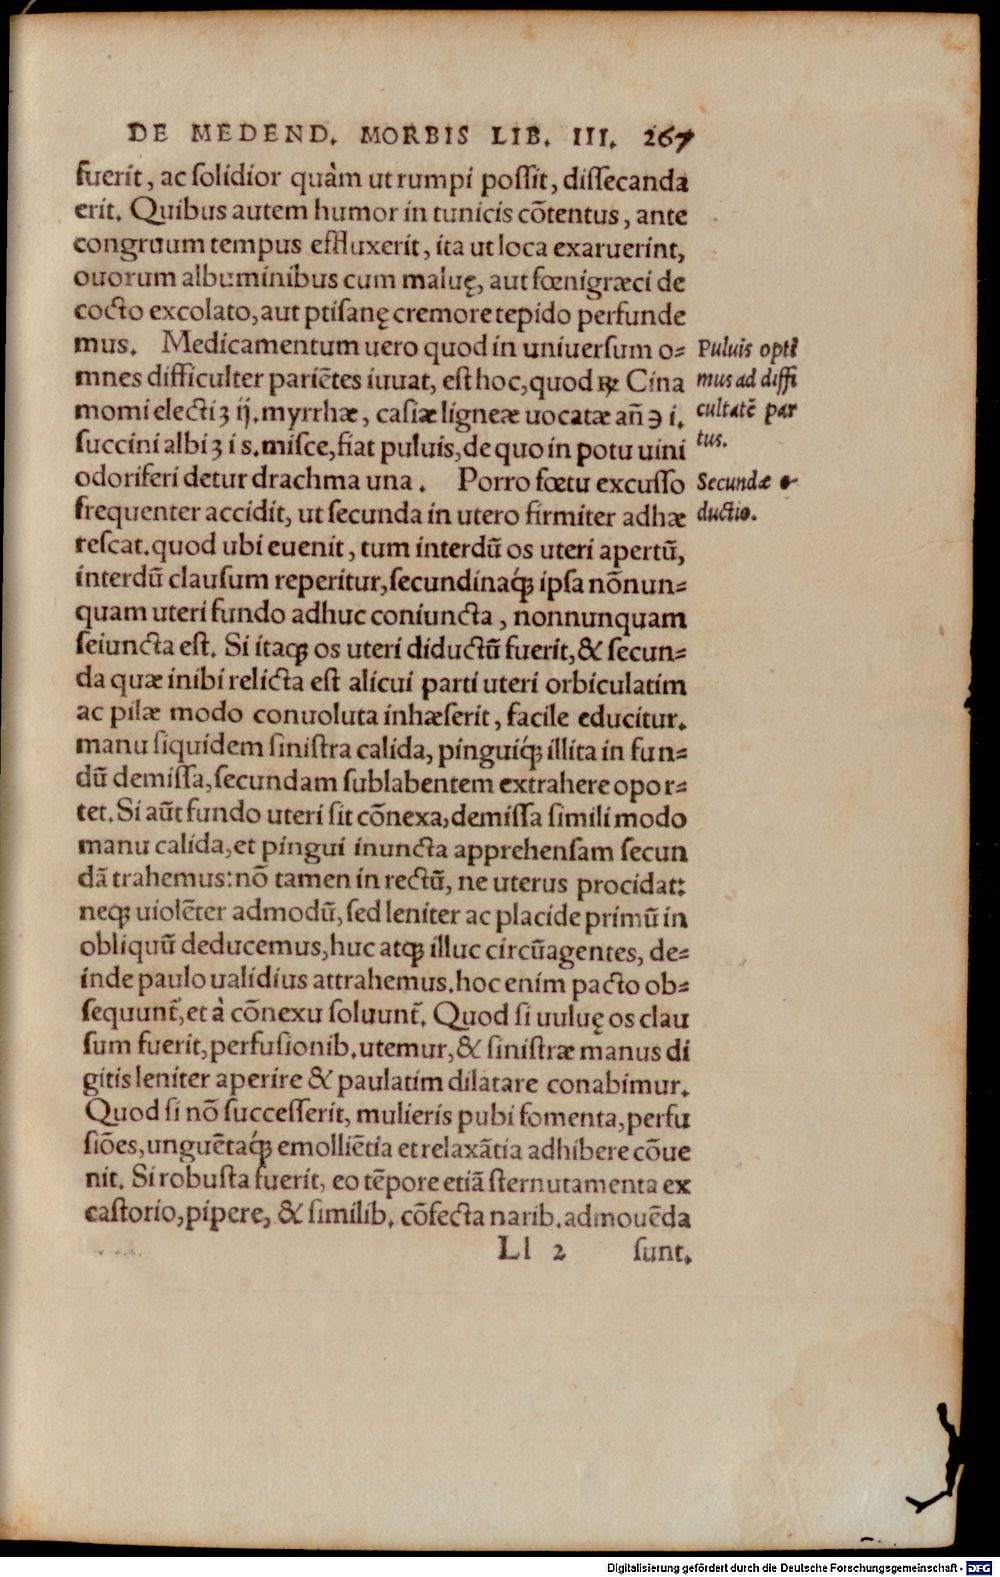 DE MEDEND. MORBIS LIB. III. 267
fuerit, ac solidior quàm ut rumpi possit, dissecanda
erit. Quibus autem humor in tunicis cõtentus, ante
congruum tempus effluxerit, ita ut loca exaruerint,
ovorum albuminibus cum maluę, aut fœnigræci de
cocto excolato, aut ptisanę cremore tepido perfunde
mus. Medicamentum uero quod in uniuersum o=
mnes difficulter pariẽtes iuuat, est hoc, quod ℞ Cina
momi electi ʒ ij. myrrhæ, casiæ ligneæ uocatæ añ ℈ i.
succini albi ʒ i s. misce, fiat puluis, de quo in potu uini
odoriferi detur drachma una. Porro fœtu excusso
frequenter accidit, ut secunda in utero firmiter adhæ
rescat. quod ubi euenit, tum interdũ os uteri apertũ,
interdũ clausum reperitur, secundinaq́ꝫ ipsa nõnun=
quam uteri fundo adhuc coniuncta, nonnunquam
seiuncta est. Si itaqꝫ os uteri diductũ fuerit, & secun=
da quæ inibi relicta est alicui parti uteri orbiculatim
ac pilæ modo conuoluta inhæserit, facile educitur.
manu siquidem sinistra calida, pinguiq́ꝫ illita in fun=
dũ demissa, secundam sublabentem extrahere opor=
tet. Si aũt fundo uteri sit cõnexa, demissa simili modo
manu calida, et pingui inuncta apprehensam secun
dã trahemus: nõ tamen in rectũ, ne uterus procidat:
neqꝫ uiolẽter admodũ, sed leniter ac placide primũ in
obliquũ deducemus, huc atqꝫ illuc circũagentes, de=
inde paulo ualidius attrahemus. hoc enim pacto ob=
sequunt̃, et à cõnexu soluunt̃. Quod si uuluę os clau
sum fuerit, perfusionib. utemur, & sinistræ manus di
gitis leniter aperire & paulatim dilatare conabimur.
Quod si nõ successerit, mulieris pubi fomenta, perfu
siões, unguẽtaq́ꝫ emolliẽtia et relaxãtia adhibere cõue
nit. Si robusta fuerit, eo tẽpore etiã sternutamenta ex
castorio, pipere, & similib. cõfecta narib. admouẽda
Ll 2 sunt.
Puluis opti
mus ad diffi
cultatẽ par
tus.
Secundæ e-
ductio.
Digitalisierung gefördert durch die Deutsche Forschungsgemeinschaft - DFG